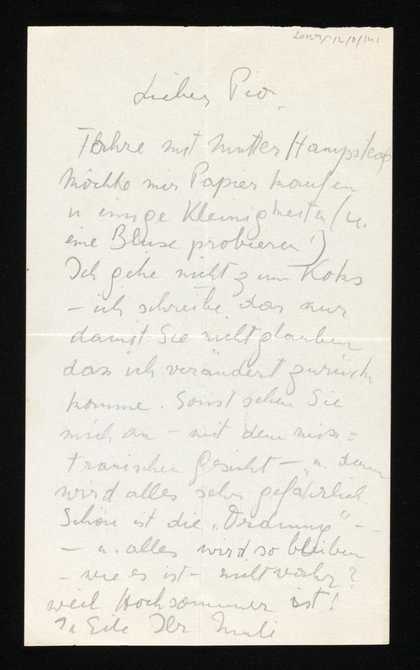 20129/12/8/141
Lieber Pio.
Fahre mit Mutter Hampstead
Möchte mir Papier kaufen
u einige Kleinigkeiten (u.
eine Bluse probieren!)
Ich gehe nicht zum Koks
– ich schreibe das nur
damit Sie nicht glauben
dass ich verändert zurück
komme. Sonst sehen Sie
mich an – mit dem miss=
trauischen Gesicht – u. dann
wird alles sehr gefährlich
Schön ist die „Ordnung" –
– u. alles wird so bleiben
– wie es ist – nicht wahr?
weil Hochsommer ist!
In Eile Ihr